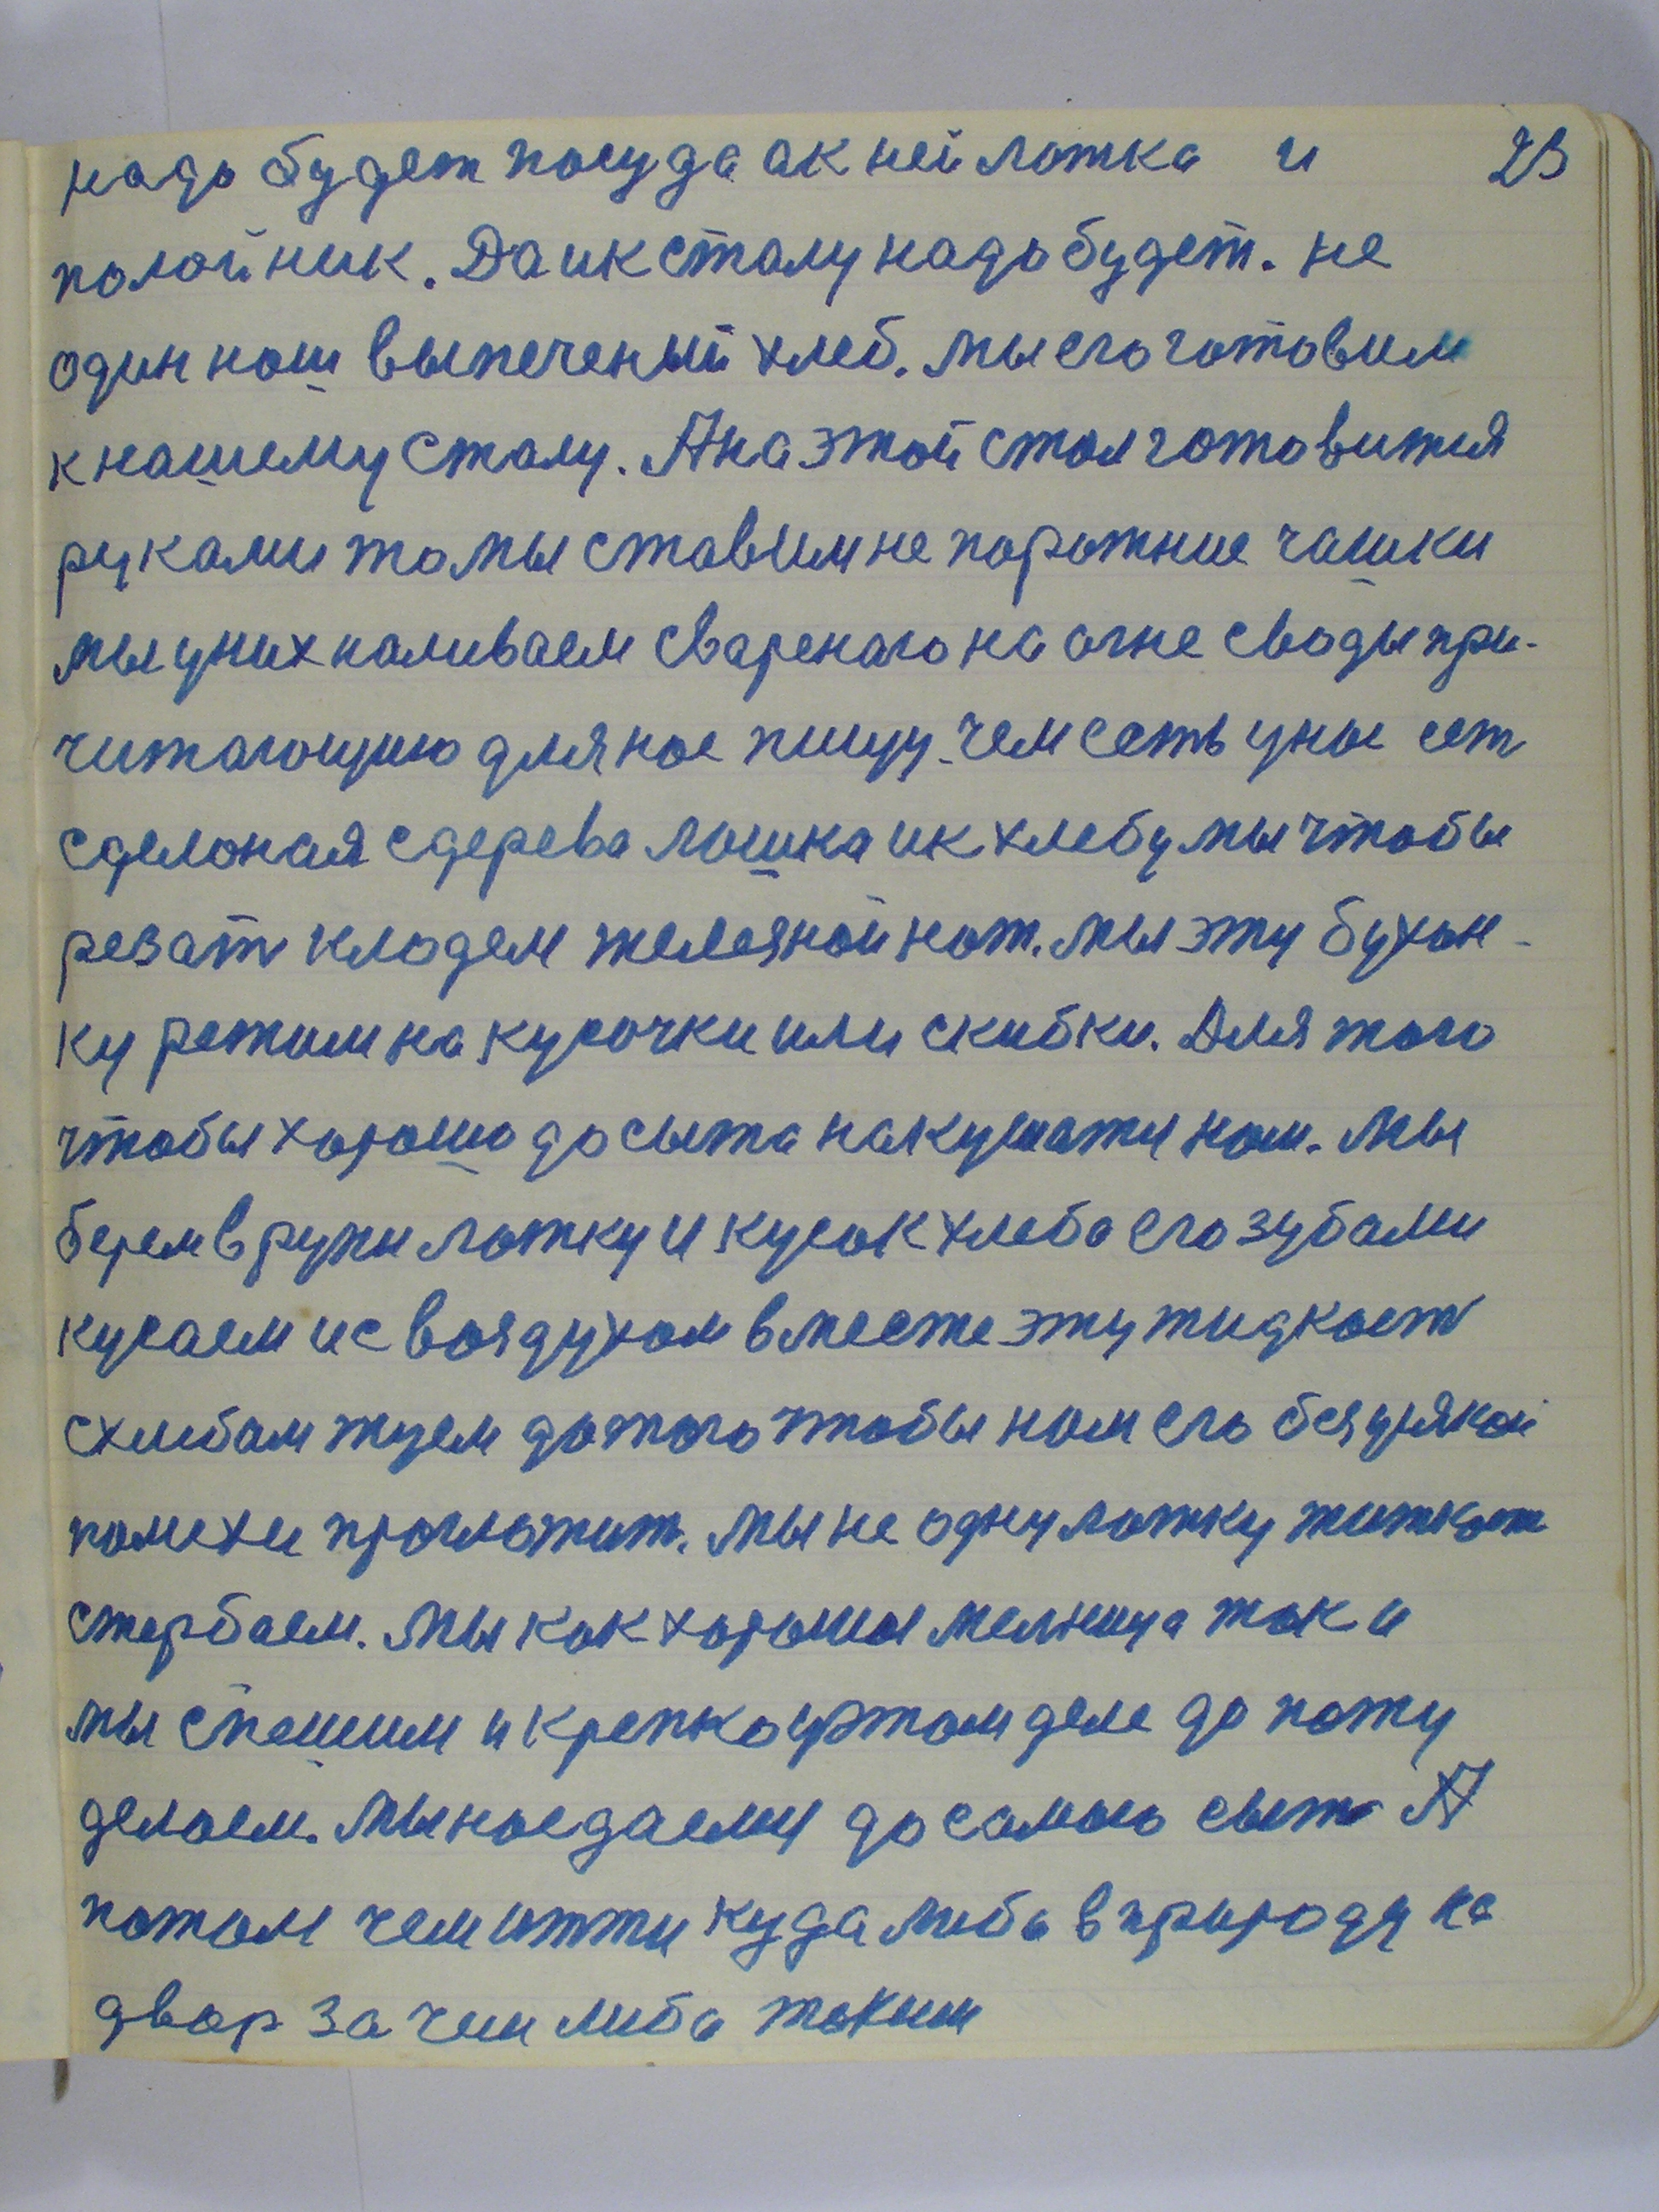 надо будет посуда а к ней ложка и 23
полойник. Да и к сталу надо будет. не
один наш выпеченый хлеб. мы его готовим
к нашему сталу. А на этой стол готовится
руками то мы ставим не порожние чашки
мы у них наливаем свареного на огне с воды при-
читающую для нас пищу. чем есть у нас ест
сделоная с дерева лошка и к хлебу мы чтобы
резат кладем железной нож. мы эту бухан-
ку режим на кусочки или скибки. Для того
чтобы хорошо досыта накушатся нам. мы
берем в руки ложку и кусок хлеба его зубами
кусаем и с воздухом вместе эту жидкост
с хлебам жуем до того чтобы нам его без узякой
помехи проглотит. мы не одну ложку житкост
стербаем. мы как хорошая мельница так и
мы спешим и крепко у этом деле до поту
делаем. мы наедаемся до самого сыта А
потом чем итти куда либо в природу на
двор за чем либа таким